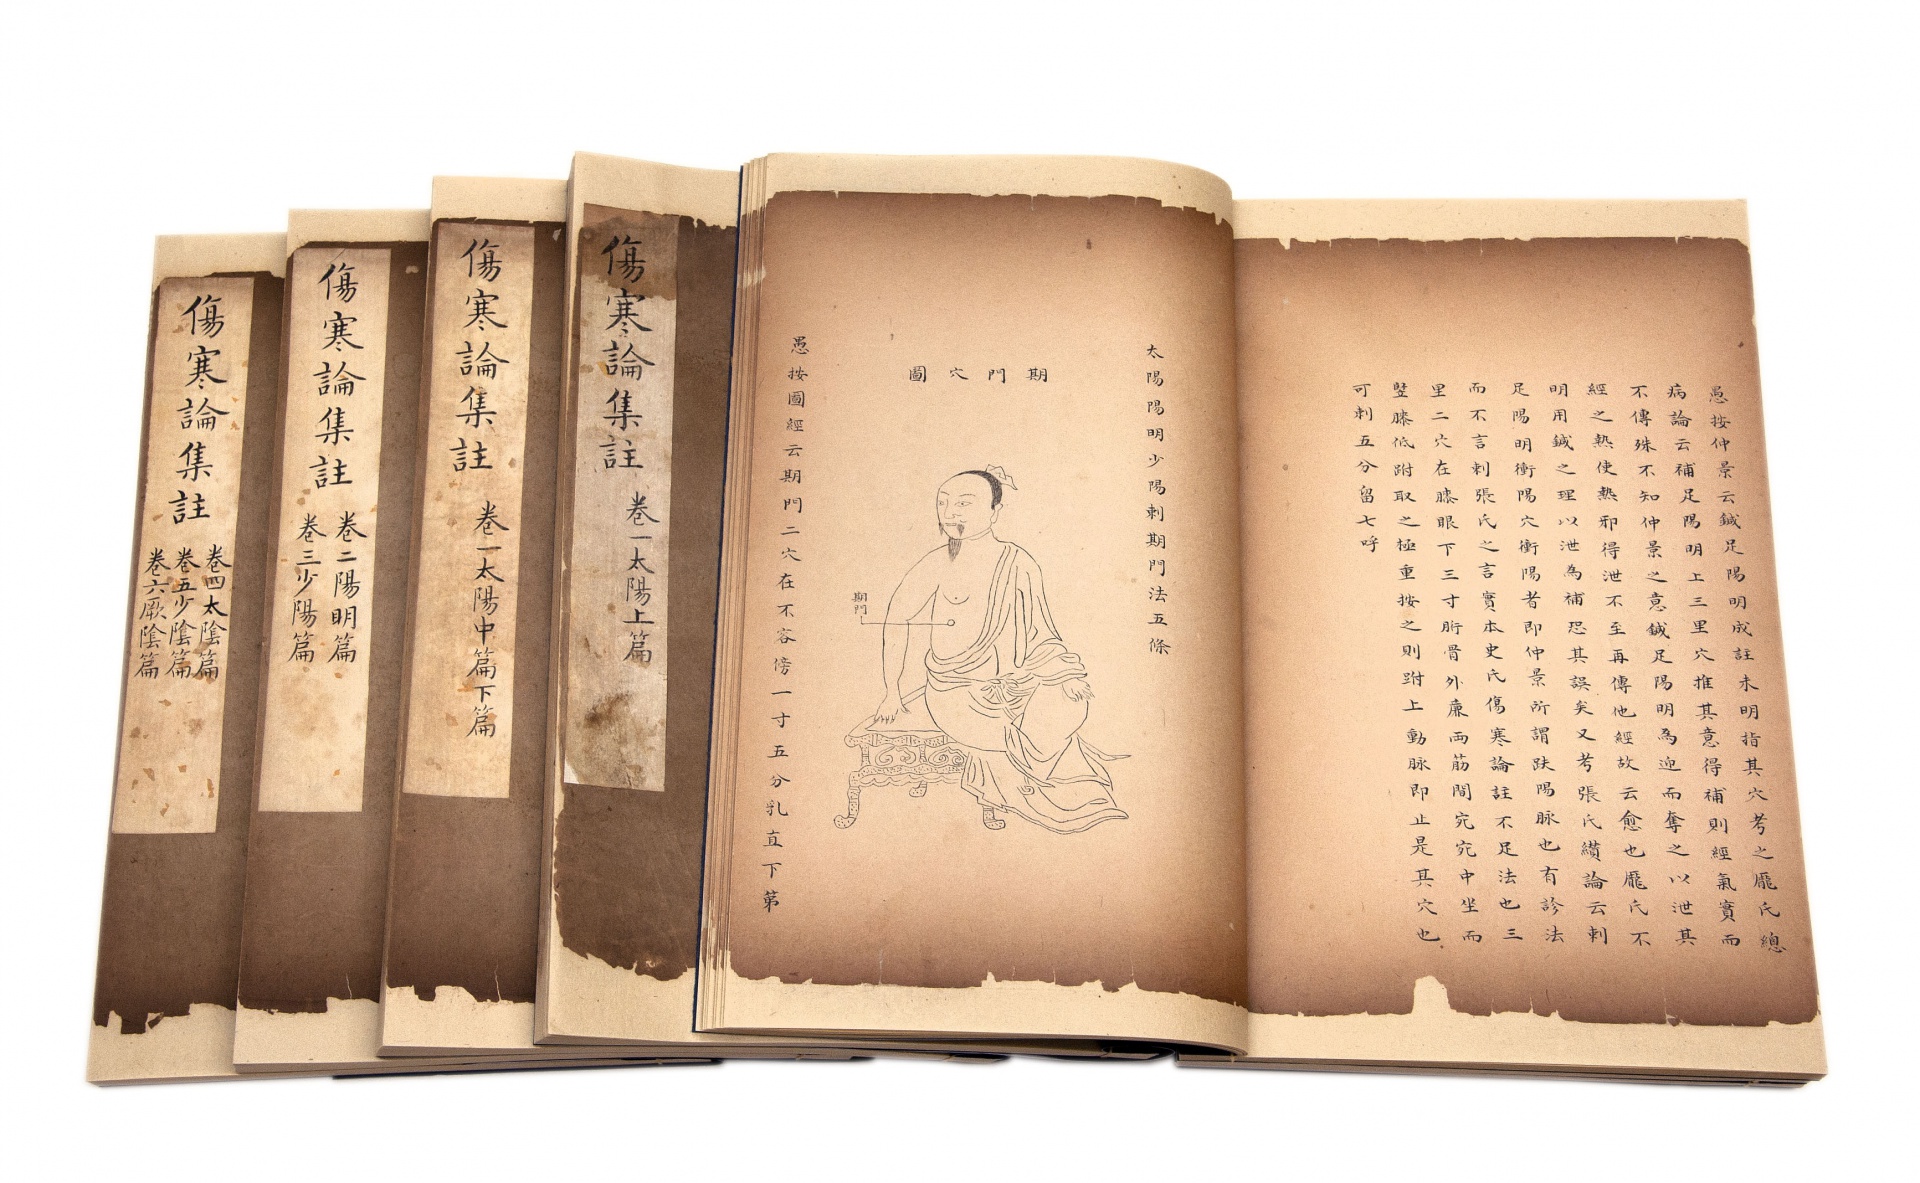 傷寒論集註
卷四太陰篇
卷五少陰篇
卷六厥陰篇
傷寒論集註
卷二陽明篇
卷三少陽篇
傷寒論集註
卷一太陽中篇下篇
傷寒論集註
卷一太陽上篇
愚按仲景云鍼足陽明成註未明指其穴考之龐氏總
病論云補足陽明土三里穴推其意得補則經氣實而
不傳殊不知仲景之意鍼足陽明為迎而奪之以泄其
經之熱使熱邪得泄不至再傳他經故云愈也龐氏不
明用鍼之理以泄為補恐其誤矣又考張氏纘論云刺
足陽明衝陽穴衝陽者即仲景所謂趺陽脉也有診法
而不言刺張氏之言實本史氏傷寒論註不足法也三
里二穴在膝眼下三寸胻骨外廉兩筋間宛宛中坐而
竪膝低跗取之極重按之則跗上動脉即止是其穴也
可刺五分留七呼
太陽陽明少陽刺期門法五條
期門穴圖
期門
愚按圖經云期門二穴在不容傍一寸五分乳直下第